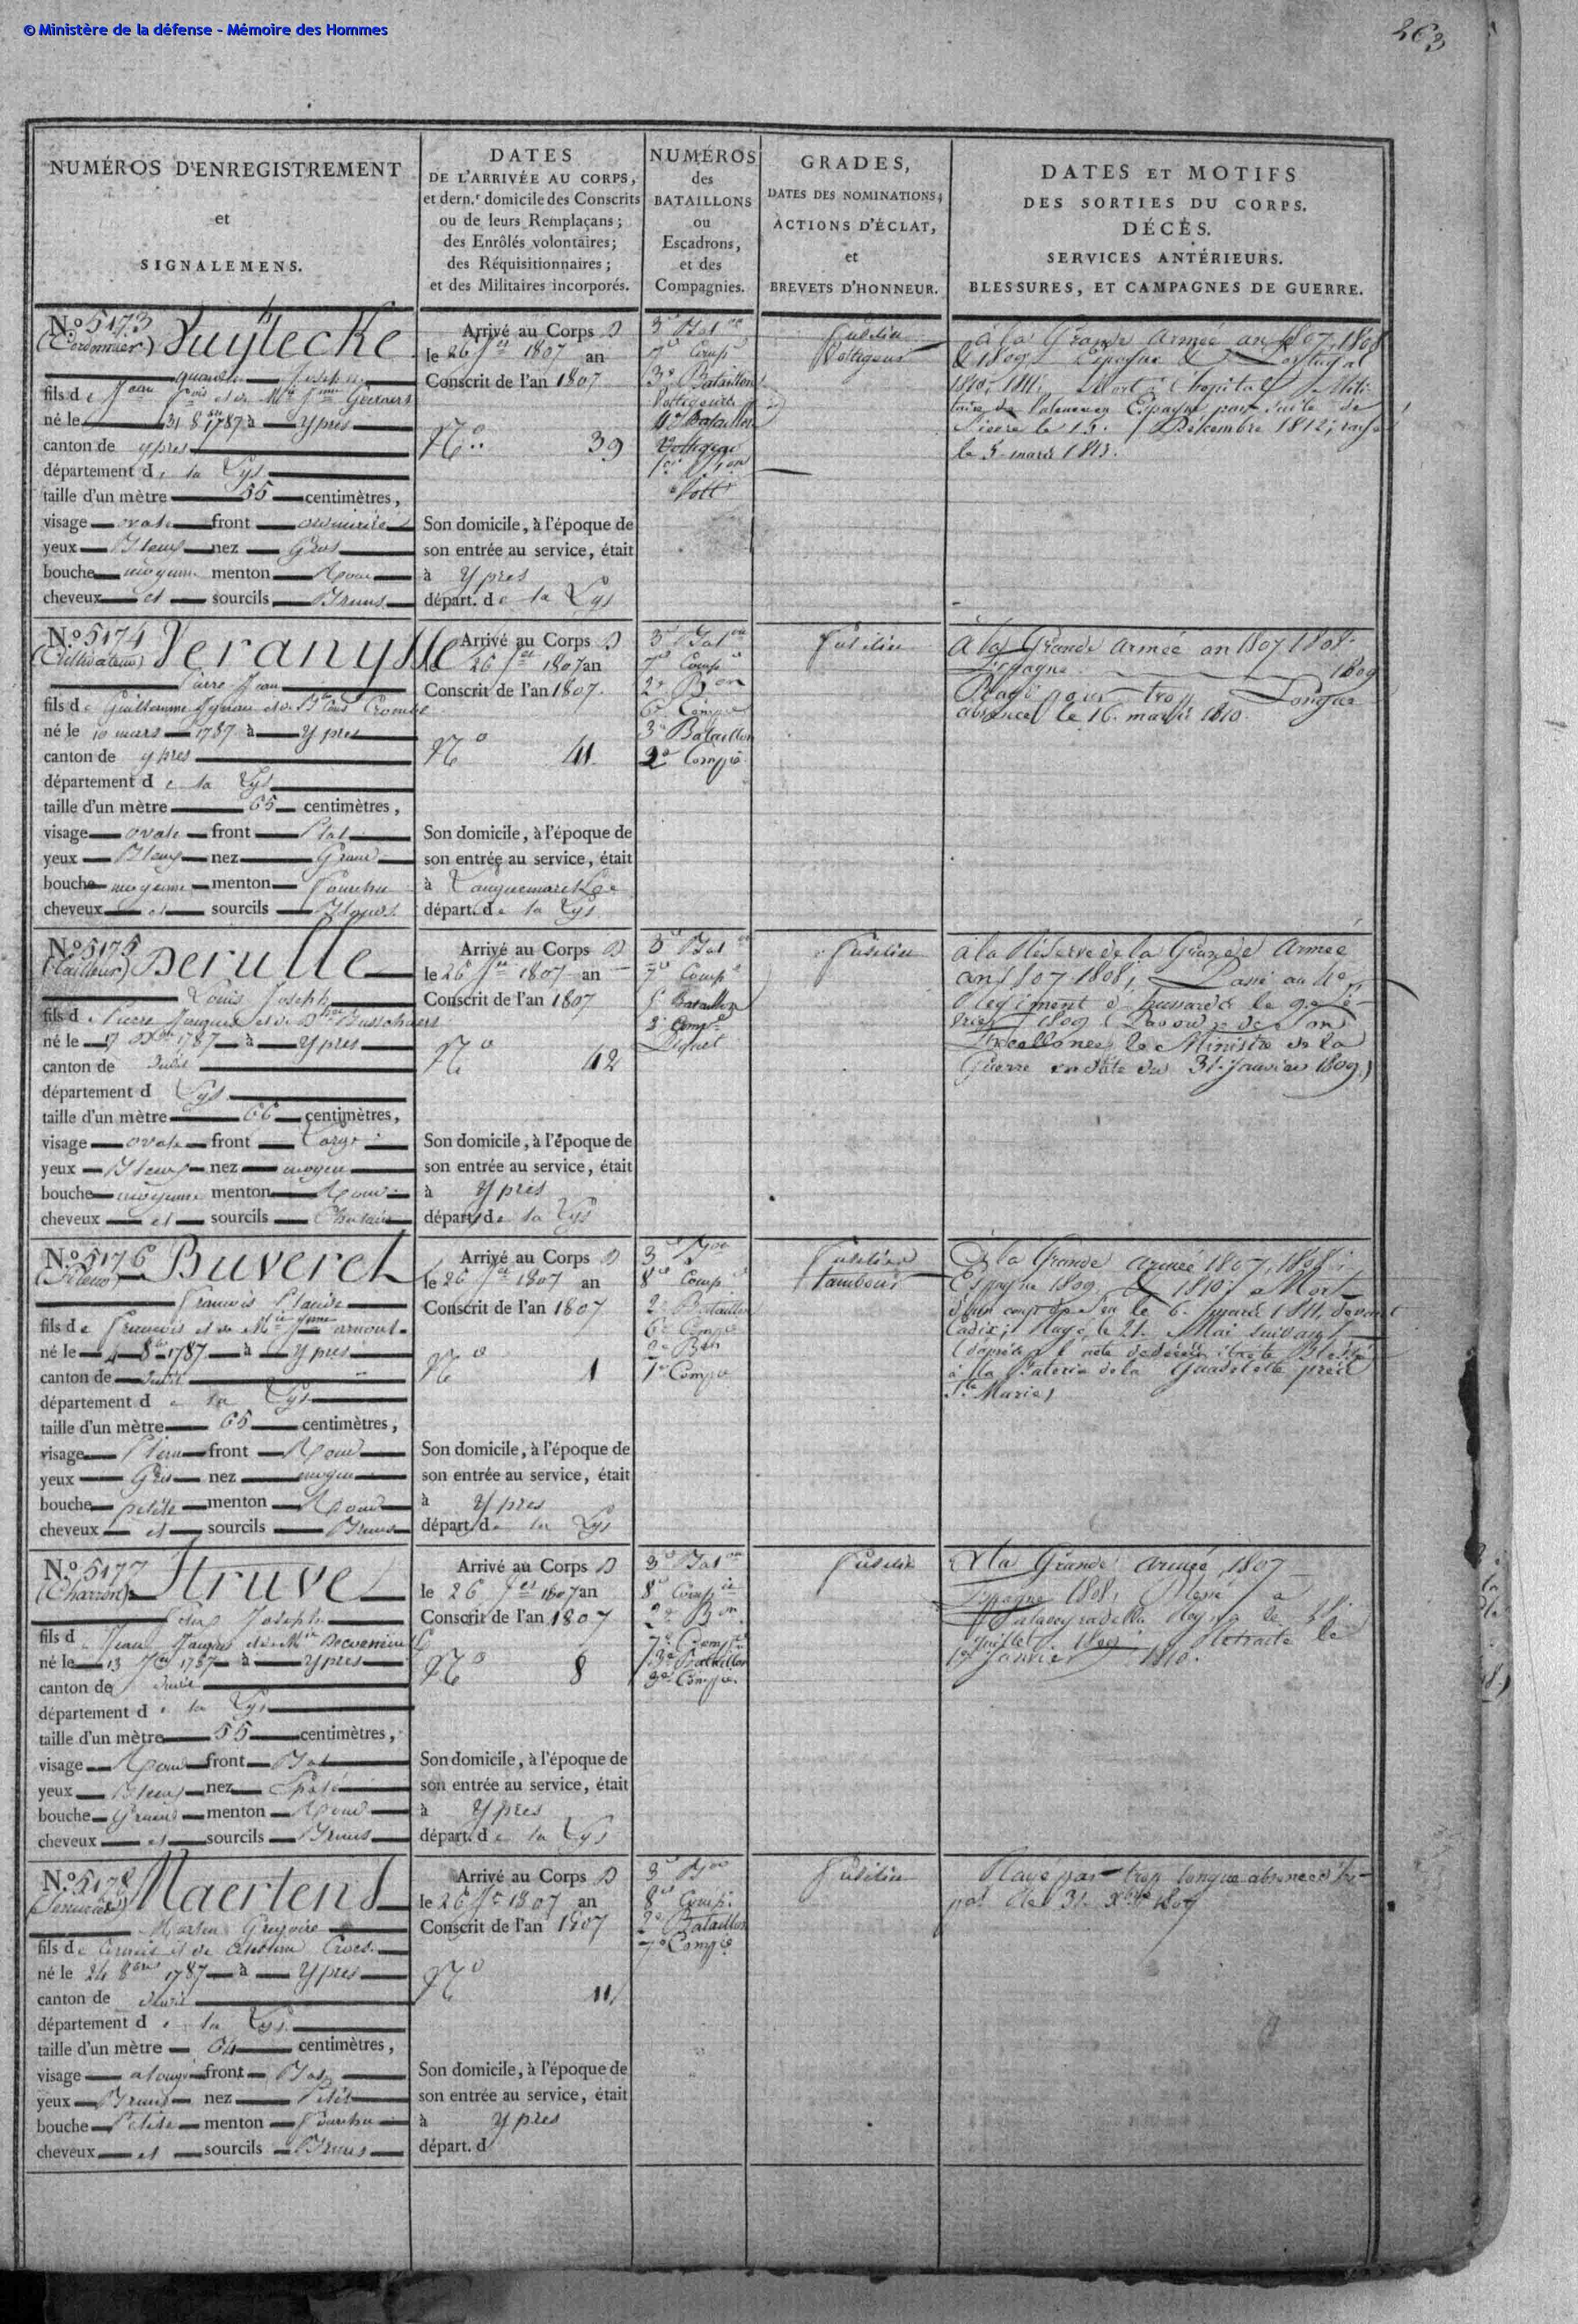 © Ministère de la défense - Mémoire des Hommes
263
NUMÉROS D'ENREGISTREMENT
et
SIGNALEMENS.
DATES
DE L'ARRIVÉE AU CORPS,
et dern.r domicile des Conscrits
ou de leurs Remplaçans;
des Enrôlés volontaires;
des Réquisitionnaires;
et des Militaires incorporés.
NUMÉROS
des
BATAILLONS
ou
Escadrons,
et des
Compagnies.
GRADES,
DATES DES NOMINATIONS,
ACTIONS D'ÉCLAT,
et
BREVETS D'HONNEUR.
DATES ET MOTIFS
DES SORTIES DU CORPS.
DÉCÈS.
SERVICES ANTÉRIEURS.
BLESSURES, ET CAMPAGNES DE GUERRE.
N.o 5173
(Cordonnier)
Joseph
fils de Jean
né le 31 8bre 1787 à Ypres
canton de ypres
département de la Lys
taille d'un mètre 55 centimètres,
visage ovale front
yeux Bleus nez Gros
bouche moyenne menton Rond
cheveux et sourcils Bruns
Arrivé au Corps
le 26 1807 an
Conscrit de l'an 1807
N.o 39
Son domicile, à l'époque de
son entrée au service, était
à Ypres
départ. de la Lys
3e Baton
7e Comp
3e Bataillon
Voltigeurs
4e Bataillon
Voltigeur
Volt
Fusilier
Voltigeur
à la Grande Armée an 1807, 1808
& 1809; Espagne & Portugal
1810, 1811; Mort à l'hopital Mili-
taire de Espagne, par suite de
fievre le 15. Décembre 1812; rayé
le 5 mars 1813.
N.o 5174
(Cultivateur)
Pierre Jean
fils de Guillaume
né le 10 mars 1787 à Ypres
canton de ypres
département de la Lys
taille d'un mètre 65 centimètres,
visage ovale front Plat
yeux Bleus nez Grand
bouche moyenne menton Fourchu
cheveux et sourcils
Arrivé au Corps
le 26 1807 an
Conscrit de l'an 1807.
N.o 41
Son domicile, à l'époque de
son entrée au service, était
à
départ. de la Lys
3e Baton
7e Comp
2e Bon
6e Compie
3e Bataillon
2e Compie
Fusilier
à la Grande armée an 1807 1808
Espagne 1809
Rayé pour trop Longue
absence le 16. mars 1810.
N.o 5175
(Tailleur) Derulle
Louis Joseph
fils de Pierre Jacques et de
né le 17 1787 à Ypres
canton de dudit
département d Lys
taille d'un mètre 66 centimètres,
visage ovale front Large
yeux Bleus nez moyen
bouche moyenne menton Rond
cheveux et sourcils Chatain
Arrivé au Corps
le 26 1807 an
Conscrit de l'an 1807
N.o 42
Son domicile, à l'époque de
son entrée au service, était
à Ypres
départ. de la Lys
3e Bat
7e Comp
Bataillon
Fusilier
à la Réserve de la Grande Armée
an 1807 1808, Passé au 4e
Régiment d'hussards le 9. Fé-
vrier 1809 (Par ordre de Son
Excellence le Ministre de la
Guerre en date du 31. Janvier 1809)
N.o 5176
Buveret
François Claude
fils de François et de
né le 4 8bre 1787 à Ypres
canton de dudit
département de la Lys
taille d'un mètre 65 centimètres,
visage Plein front Rond
yeux Gris nez moyen
bouche petite menton Rond
cheveux et sourcils Bruns
Arrivé au Corps
le 26 1807 an
Conscrit de l'an 1807
N.o 1
Son domicile, à l'époque de
son entrée au service, était
à Ypres
départ. de la Lys
3e Bon
8e Comp
2e Bataillon
6e Compie
2e Bon
7e Compie
Fusilier
Tambour
à la Grande armée 1807, 1808;
Espagne 1809. & 1810; Mort
d'un coup de feu le 6. mars 1811, devant
Cadix; Rayé le 21. Mai suivant
(d'après l'acte de décès
à la Baterie de la près
Ste Marie)
N.o 5177
(Charron) Struve
Joseph
fils de Jean Jacques et de
né le 13 1787 à Ypres
canton de dudit
département de la Lys
taille d'un mètre 55 centimètres,
visage Rond front Bas
yeux Bleus nez Epaté
bouche Grande menton Rond
cheveux et sourcils Bruns
Arrivé au Corps
le 26 1807 an
Conscrit de l'an 1807
N.o 8
Son domicile, à l'époque de
son entrée au service, était
à Ypres
départ. de la Lys
3e Baton
8e Compie
2e Bon
7e Compie
3e Bataillon
Compie
Fusilier
à la Grande armée 1807
Espagne 1808; Blessé à
Reyna le 28.
Juillet 1809. Retraité le
17 Janvier 1810.
N.o 5178
Maertens
Martin Gregoire
fils de
né le 24 8bre 1787 à Ypres
canton de dudit
département de la Lys
taille d'un mètre 64 centimètres,
visage alongé front Bas
yeux Bruns nez Petit
bouche Petite menton Fourchu
cheveux et sourcils Bruns
Arrivé au Corps
le 26 1807 an
Conscrit de l'an 1807
N.o 11
Son domicile, à l'époque de
son entrée au service, était
à Ypres
départ. d
3e Bon
8e Comp.
2e Bataillon
7e Compie
Fusilier
Rayé par trop longue absence d'hô-
pal le 31. Xbre 1807